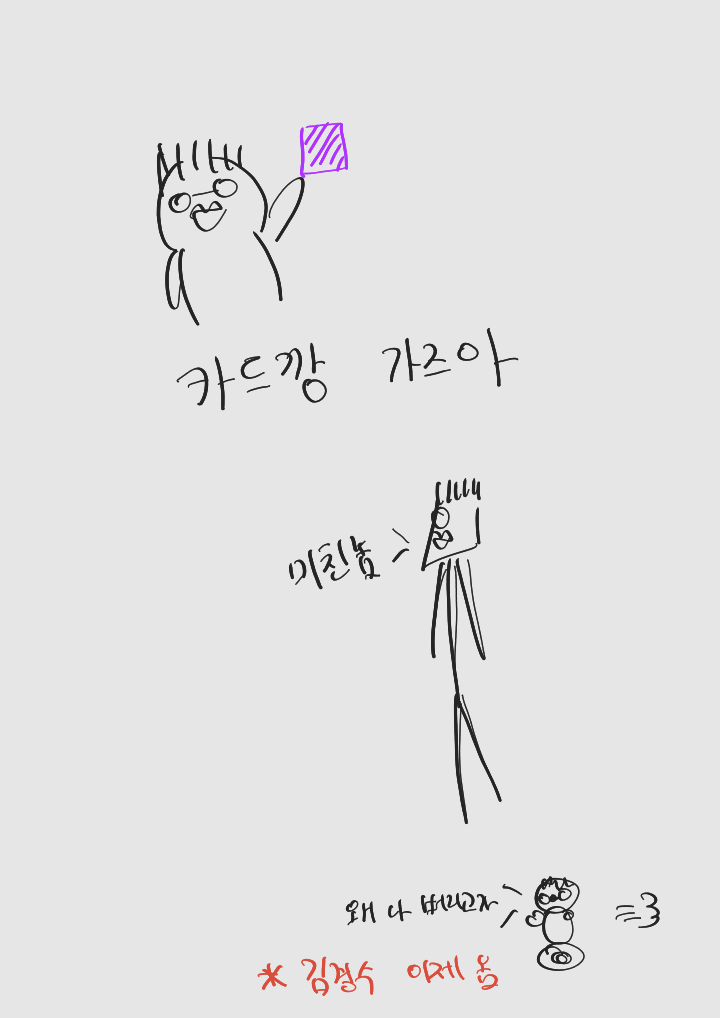 카드깡 가즈아
미친놈
왜 나 버리고가
* 김철수 이제 옴